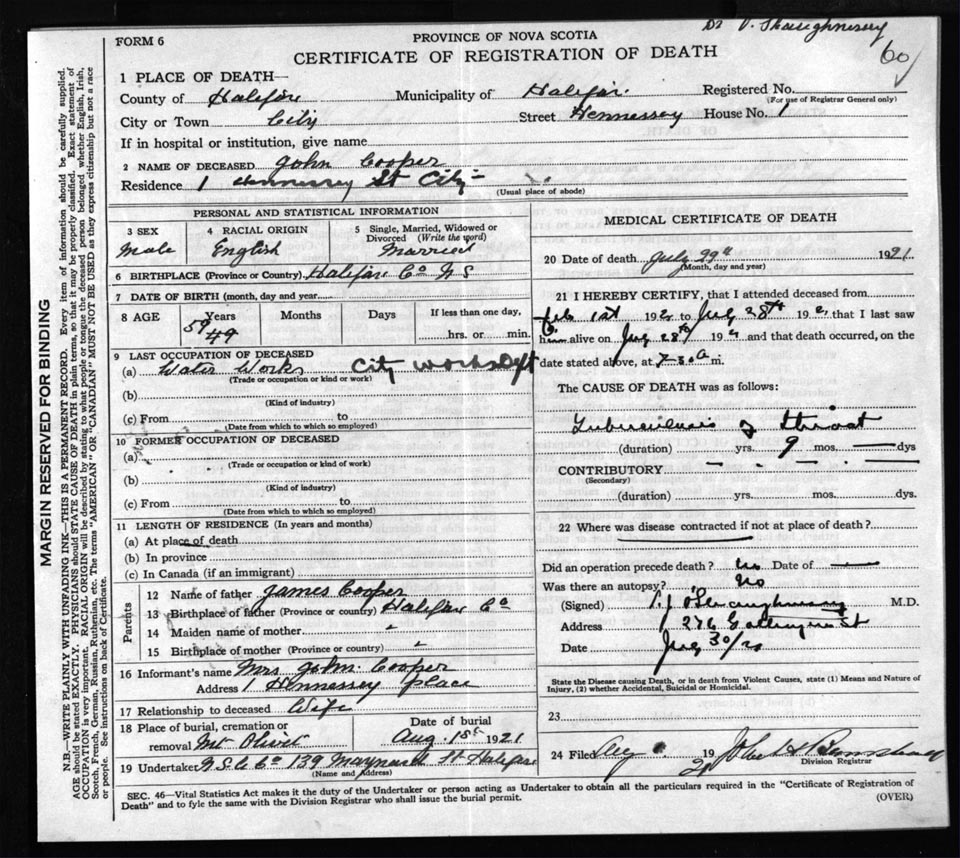 Dr O. Shaughnessy
60
FORM 6
PROVINCE OF NOVA SCOTIA
CERTIFICATE OF REGISTRATION OF DEATH
1 PLACE OF DEATH—
County of Halifax Municipality of Halifax Registered No.
(For use of Registrar General only)
City or Town City Street Hennessey House No. 1
If in hospital or institution, give name
2 NAME OF DECEASED John Cooper
Residence 1 Hennessey St City
(Usual place of abode)
PERSONAL AND STATISTICAL INFORMATION
3 SEX 4 RACIAL ORIGIN 5 Single, Married, Widowed or Divorced (Write the word)
Male English Married
6 BIRTHPLACE (Province or Country) Halifax Co N S
7 DATE OF BIRTH (month, day and year)
8 AGE Years Months Days If less than one day,
59
49 hrs. or min.
9 LAST OCCUPATION OF DECEASED
(a) Water Works City works Dept
(Trade or occupation or kind or work)
(b)
(Kind of industry)
(c) From to
(Date from which to which so employed)
10 FORMER OCCUPATION OF DECEASED
(a)
(Trade or occupation or kind of work)
(b)
(Kind of industry)
(c) From to
(Date from which to which so employed)
11 LENGTH OF RESIDENCE (In years and months)
(a) At place of death
(b) In province
(c) In Canada (if an immigrant)
Parents
12 Name of father James Cooper
13 Birthplace of father (Province or country) Halifax Co
14 Maiden name of mother
15 Birthplace of mother (Province or country)
16 Informant's name Mrs John Cooper
Address 1 Hennessey place
17 Relationship to deceased Wife
18 Place of burial, cremation or removal Mt Olivet Date of burial Aug. 1st 1921
19 Undertaker N.S.U Co 139 Maynard St Halifax
(Name and Address)
MEDICAL CERTIFICATE OF DEATH
20 Date of death July 29th 1921
(Month, day and year)
21 I HEREBY CERTIFY, that I attended deceased from
Feb 1st 192 to July 28th 192 that I last saw
him alive on July 28th 192 and that death occurred, on the
date stated above, at 7-30 a m.
The CAUSE OF DEATH was as follows:
Tuberculosis of throat
(duration) yrs. 9 mos. dys
CONTRIBUTORY
(Secondary)
(duration) yrs. mos. dys.
22 Where was disease contracted if not at place of death?
Did an operation precede death? No Date of
Was there an autopsy? No
(Signed) O'Shaughnessy M.D.
Address
Date July 30/21
State the Disease causing Death, or in death from Violent Causes, state (1) Means and Nature of Injury, (2) whether Accidental, Suicidal or Homicidal.
23
24 Filed 19
Division Registrar
SEC. 46—Vital Statistics Act makes it the duty of the Undertaker or person acting as Undertaker to obtain all the particulars required in the "Certificate of Registration of Death" and to fyle the same with the Division Registrar who shall issue the burial permit.
(OVER)
MARGIN RESERVED FOR BINDING
N.B.—WRITE PLAINLY WITH UNFADING INK—THIS IS A PERMANENT RECORD. Every item of information should be carefully supplied.
AGE should be stated EXACTLY. PHYSICIANS should STATE CAUSE OF DEATH in plain terms, so that it may be properly classified. Exact statement of
OCCUPATION is very important. RACIAL ORIGIN will be described by stating to what people or tongue the deceased person belonged whether English, Irish,
Scotch, French, German, Russian, Ruthenian, etc. The terms "AMERICAN" OR "CANADIAN" MUST NOT BE USED as they express citizenship but not a race
or people. See instructions on back of Certificate.